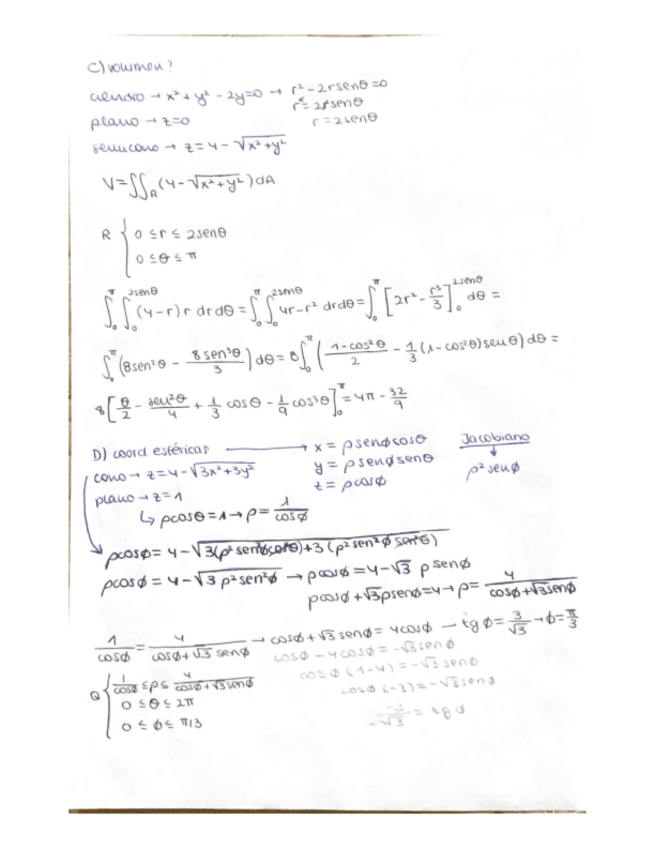 C) volumen?
cilindro → x² + y² - 2y=0 → r² - 2rsenθ=0
r² = 2rsenθ
plano → z=0
r = 2senθ
semicono → z = 4 - √(x²+y²)
V = ∬_R (4-√(x²+y²)) dA
R { 0 ≤ r ≤ 2senθ
0 ≤ θ ≤ π
∫₀^π ∫₀^(2senθ) (4-r) r dr dθ = ∫₀^π ∫₀^(2senθ) 4r-r² dr dθ = ∫₀^π [2r² - r³/3]₀^(2senθ) dθ =
∫₀^π (8sen²θ - 8sen³θ/3) dθ = 8∫₀^π (1-cos2θ/2 - 1/3 (1-cos²θ) senθ) dθ =
8[θ/2 - sen2θ/4 + 1/3 cosθ - 1/9 cos³θ]₀^π = 4π - 32/9
D) coord. esféricas → x = ρsenφcosθ Jacobiano
cono → z=4-√(3x²+3y²) y = ρsenφsenθ ↓
plano → z=1 z = ρcosφ ρ²senφ
↳ ρcosθ = 1 → ρ = 1/cosφ
ρcosφ = 4-√(3(ρ²sen²φcos²θ)+3(ρ²sen²φ sen²θ))
ρcosφ = 4-√(3ρ²sen²φ) → ρcosφ = 4-√3 ρsenφ
ρcosφ + √3ρsenφ=4 → ρ = 4/(cosφ+√3senφ)
1/cosφ = 4/(cosφ+√3 senφ) → cosφ+√3 senφ = 4cosφ — tgφ = 3/√3 → φ = π/3
cosφ - 4cosφ = -√3senφ
Q { 1/cosφ ≤ρ≤ 4/(cosφ+√3senφ)
cosφ (1-4) = -√3 senφ
0 ≤ θ ≤ 2π
cosφ (-3) = -√3senφ
0 ≤ φ ≤ π/3
-3/-√3 = tgφ